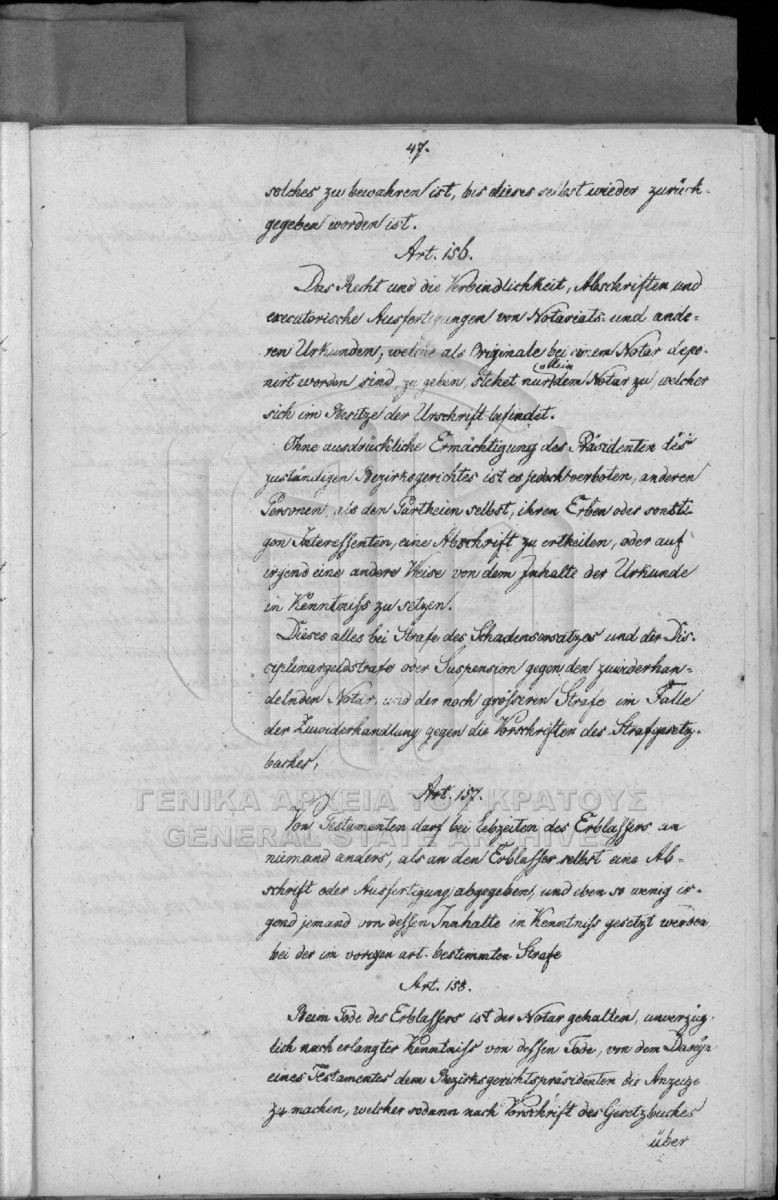 47.
solches zu bewahren ist, bis dieses selbst wieder zurück-
gegeben worden ist.
Art. 156.
Das Recht und die Verbindlichkeit, Abschriften und
executorische Ausfertigungen von Notariats- und ande-
ren Urkunden, welche als Originale bei einem Notar depo-
allein
nirt worden sind, zu geben, stehet nur dem Notar zu, welcher
sich im Besitze der Urschrift befindet.
Ohne ausdrückliche Ermächtigung des Präsidenten des
zuständigen Bezirksgerichtes ist es jedoch verboten, anderen
Personen, als den Partheien selbst, ihren Erben oder sonsti-
gen Interessenten, eine Abschrift zu ertheilen, oder auf
irgend eine andere Weise von dem Inhalte der Urkunde
in Kenntniss zu setzen.
Dieses alles bei Strafe des Schadensersatzes und der Dis-
ciplinargeldstrafe oder Suspension gegen den zuwiderhan-
delnden Notar, und der noch grösseren Strafe im Falle
der Zuwiderhandlung gegen die Vorschriften des Strafgesetz-
buches,
Art. 157.
ΓΕΝΙΚΑ ΑΡΧΕΙΑ ΤΟΥ ΚΡΑΤΟΥΣ
Von Testamenten darf bei Lebzeiten des Erblassers an
GENERAL STATE ARCHIVES
niemand anders, als an den Erblasser selbst eine Ab-
schrift oder Ausfertigung abgegeben, und eben so wenig ir-
gend jemand von dessen Innhalte in Kenntniss gesetzt werden
bei der im vorigen art. bestimmten Strafe
Art. 158.
Beim Tode des Erblassers ist der Notar gehalten, unverzüg-
lich nach erlangter Kenntniss von dessen Tode, von dem Daseyn
eines Testamentes dem Bezirksgerichtspräsidenten die Anzeige
zu machen, welcher sodann nach Vorschrift des Gesetzbuches
über